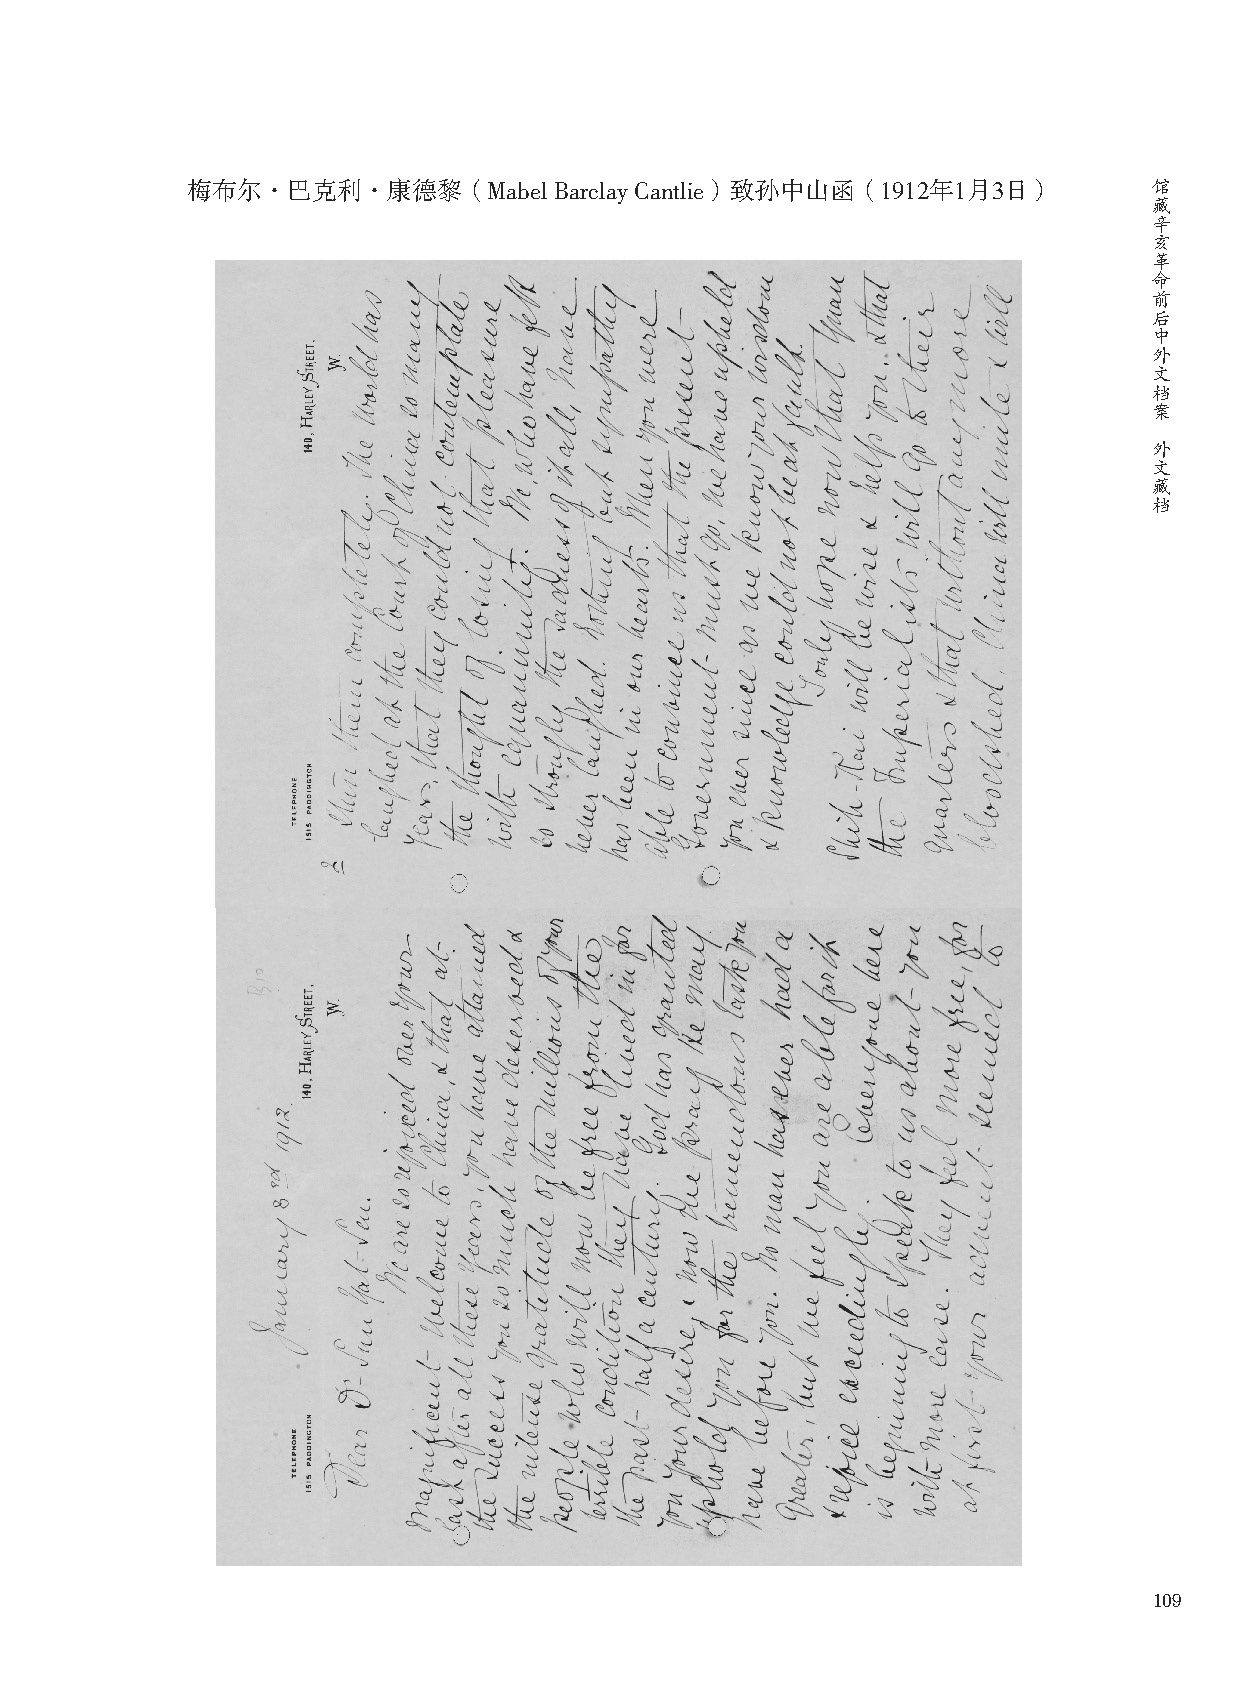 梅布尔·巴克利·康德黎（Mabel Barclay Cantlie）致孙中山函（1912年1月3日）
馆藏辛亥革命前后中外文档案 外文藏档
January 3rd 1912.
TELEPHONE
1515 PADDINGTON
140, HARLEY STREET,
W.
Dear Dr Sun Yat-Sen.
We are so rejoiced over your
magnificent welcome to China, & that at
last after all these years, you have attained
the success you so much have deserved &
the intense gratitude of the millions of your
people who will now be free from the
terrible condition they have lived in for
the past half a century. God has granted
you your desire, & now we pray He may
uphold you for the tremendous task you
have before you. No man has ever had a
greater, but we feel you are able for it
& rejoice exceedingly. Everyone here
is beginning to speak to us about you
with more ease. They feel more free, for
at first your advent seemed to
2
TELEPHONE
1515 PADDINGTON
140, HARLEY STREET,
W.
stun them completely. The world has
laughed at the Court of China so many
years, that they could not contemplate
the thought of losing that pleasure
with equanimity. We, who have felt
so strongly the sadness of it all, have
never laughed. Nothing but sympathy
has been in our hearts. When you were
able to convince us that the present
Government must go, we have upheld
you ever since as we know your wisdom
& knowledge could not be at fault.
I only hope now that Yuan
Shih-Kai will be wise & help you, & that
the Imperialists will go to their
quarters & that without any more
bloodshed, China will unite & will
109